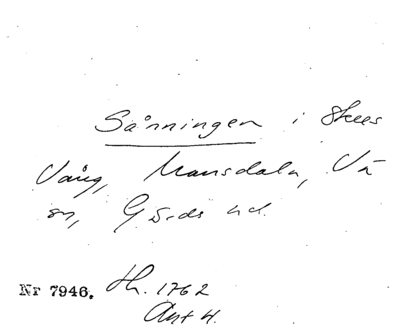 Sånningen i Skees
Vång, Mansdala, Vä
sn, Gärds hd.
Nr 7946. Th. 1762
Akt 4.